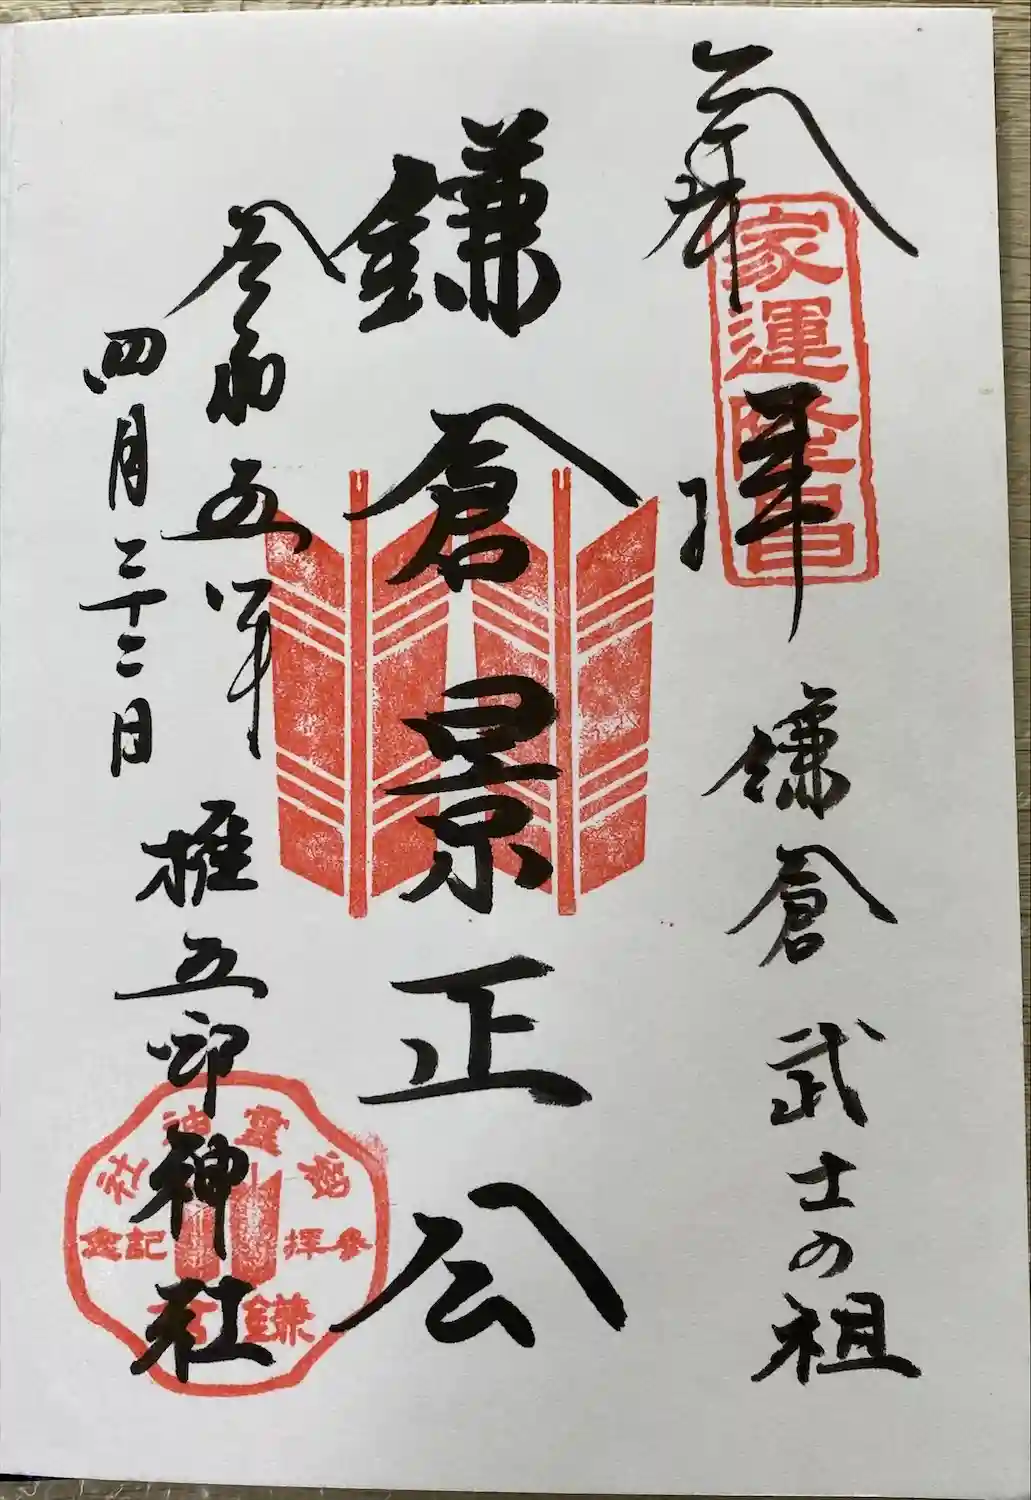 奉拝
家運隆昌
鎌倉武士の祖
鎌倉景正公
令和五年
四月二十二日
権五郎神社
御霊神社
参拝記念
鎌倉